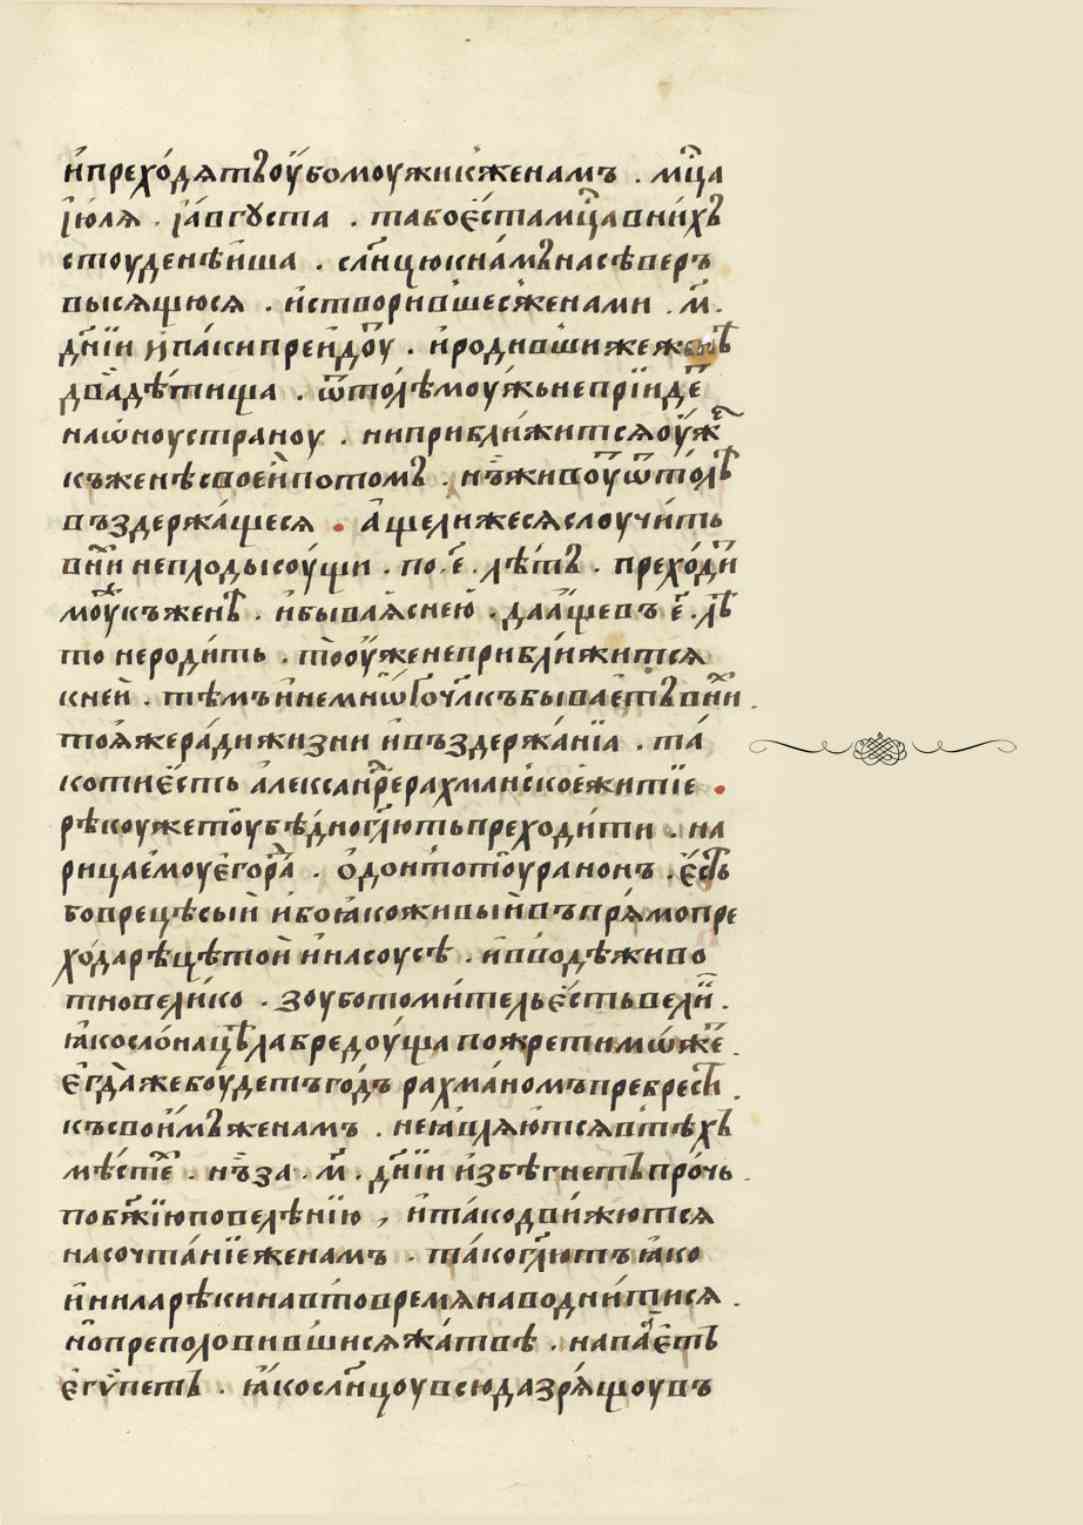 и҆прехо́дѧтъ оу҆бо моужи к женамъ . мцⷭ҇а
і҆ю́лѧ . і҆ а҆вгꙋста . та бо є҆ста мцⷭ҇а в ни́хъ
стоуденѣ́йша . слн҃цю к на́мъ на сѣверъ
высѧщюсѧ . и҆ створивше с женами . м҃.
дн҃їи и҆ па́ки преи́дꙋⷮ . и҆ родивши же женѣ
два̀ дѣ́тища . ѿто́лѣ моу́жь не прїидеⷮ
на ѡ҆ноу страноу . ни прибли́житсѧ оу҆жеⷤ
къ женѣ своеи҆ потомъ . нъ̀ живоуⷮ ѿто́лѣ
въздержа́щесѧ . а҆ще ли же сѧ слоучи́ть
в ниⷯ неплоды соу́щи . по . є҃ . лѣ́тъ . прехо́диⷮ
моуⷤ къ женѣ . и҆ быва́ѧ с нею̀ . да а҆ще въ є҃ . лѣⷮ
то не роди́ть . то̀ оу҆же не прибли́житсѧ
к неи҆ . тѣ́мъ и҆ не мнѡ́гочл҃къ быва́етъ в ниⷯ
тоѧ҆ же ра́ди жизни и҆ въздержа́нїа . та́
ко ти є҆́сть а҆леѯа́ндре рахма́нское житїе .
рѣкоу же тоу бѣ́дно гл҃ють преходи́ти . на
рица́емоу є҆гора̀ . ѻ҆донтотоуранонъ . є҆́сть
бо в рецѣ сый и҆бо ꙗ҆ко живый въпрѧ́мо пре
хо́да рѣцѣ той и҆ на соусѣ . и҆ в водѣ живо
тно вели́ко . зоуботоми́тель є҆́сть вели́й .
ꙗ҆́ко сло́на цѣ́ла бредоу́ща пожрети мѡ́жеⷮ .
є҆гда̀ же боу́детъ го́дъ рахма́номъ пребрести .
къ свои́мъ женамъ . не ꙗ҆влѧ́ютсѧ в тѣхъ
мѣ́стеⷯ . нъ̀ за . м҃ . дн҃їи и҆збѣгнетъ про́чь .
по бж҃їю повелѣ́нїю , и҆ та́ко дви́жютсѧ
на сочта́нїе женамъ . та́ко гл҃ютъ ꙗ҆́ко
и҆ нила рѣки на в то время наводни́тисѧ .
но̀ преполовившисѧ жа́твѣ . напаѧ́етъ
є҆гѵ́петъ . ꙗ҆́ко слн҃цоу всю́да зрѧ́щоу въ